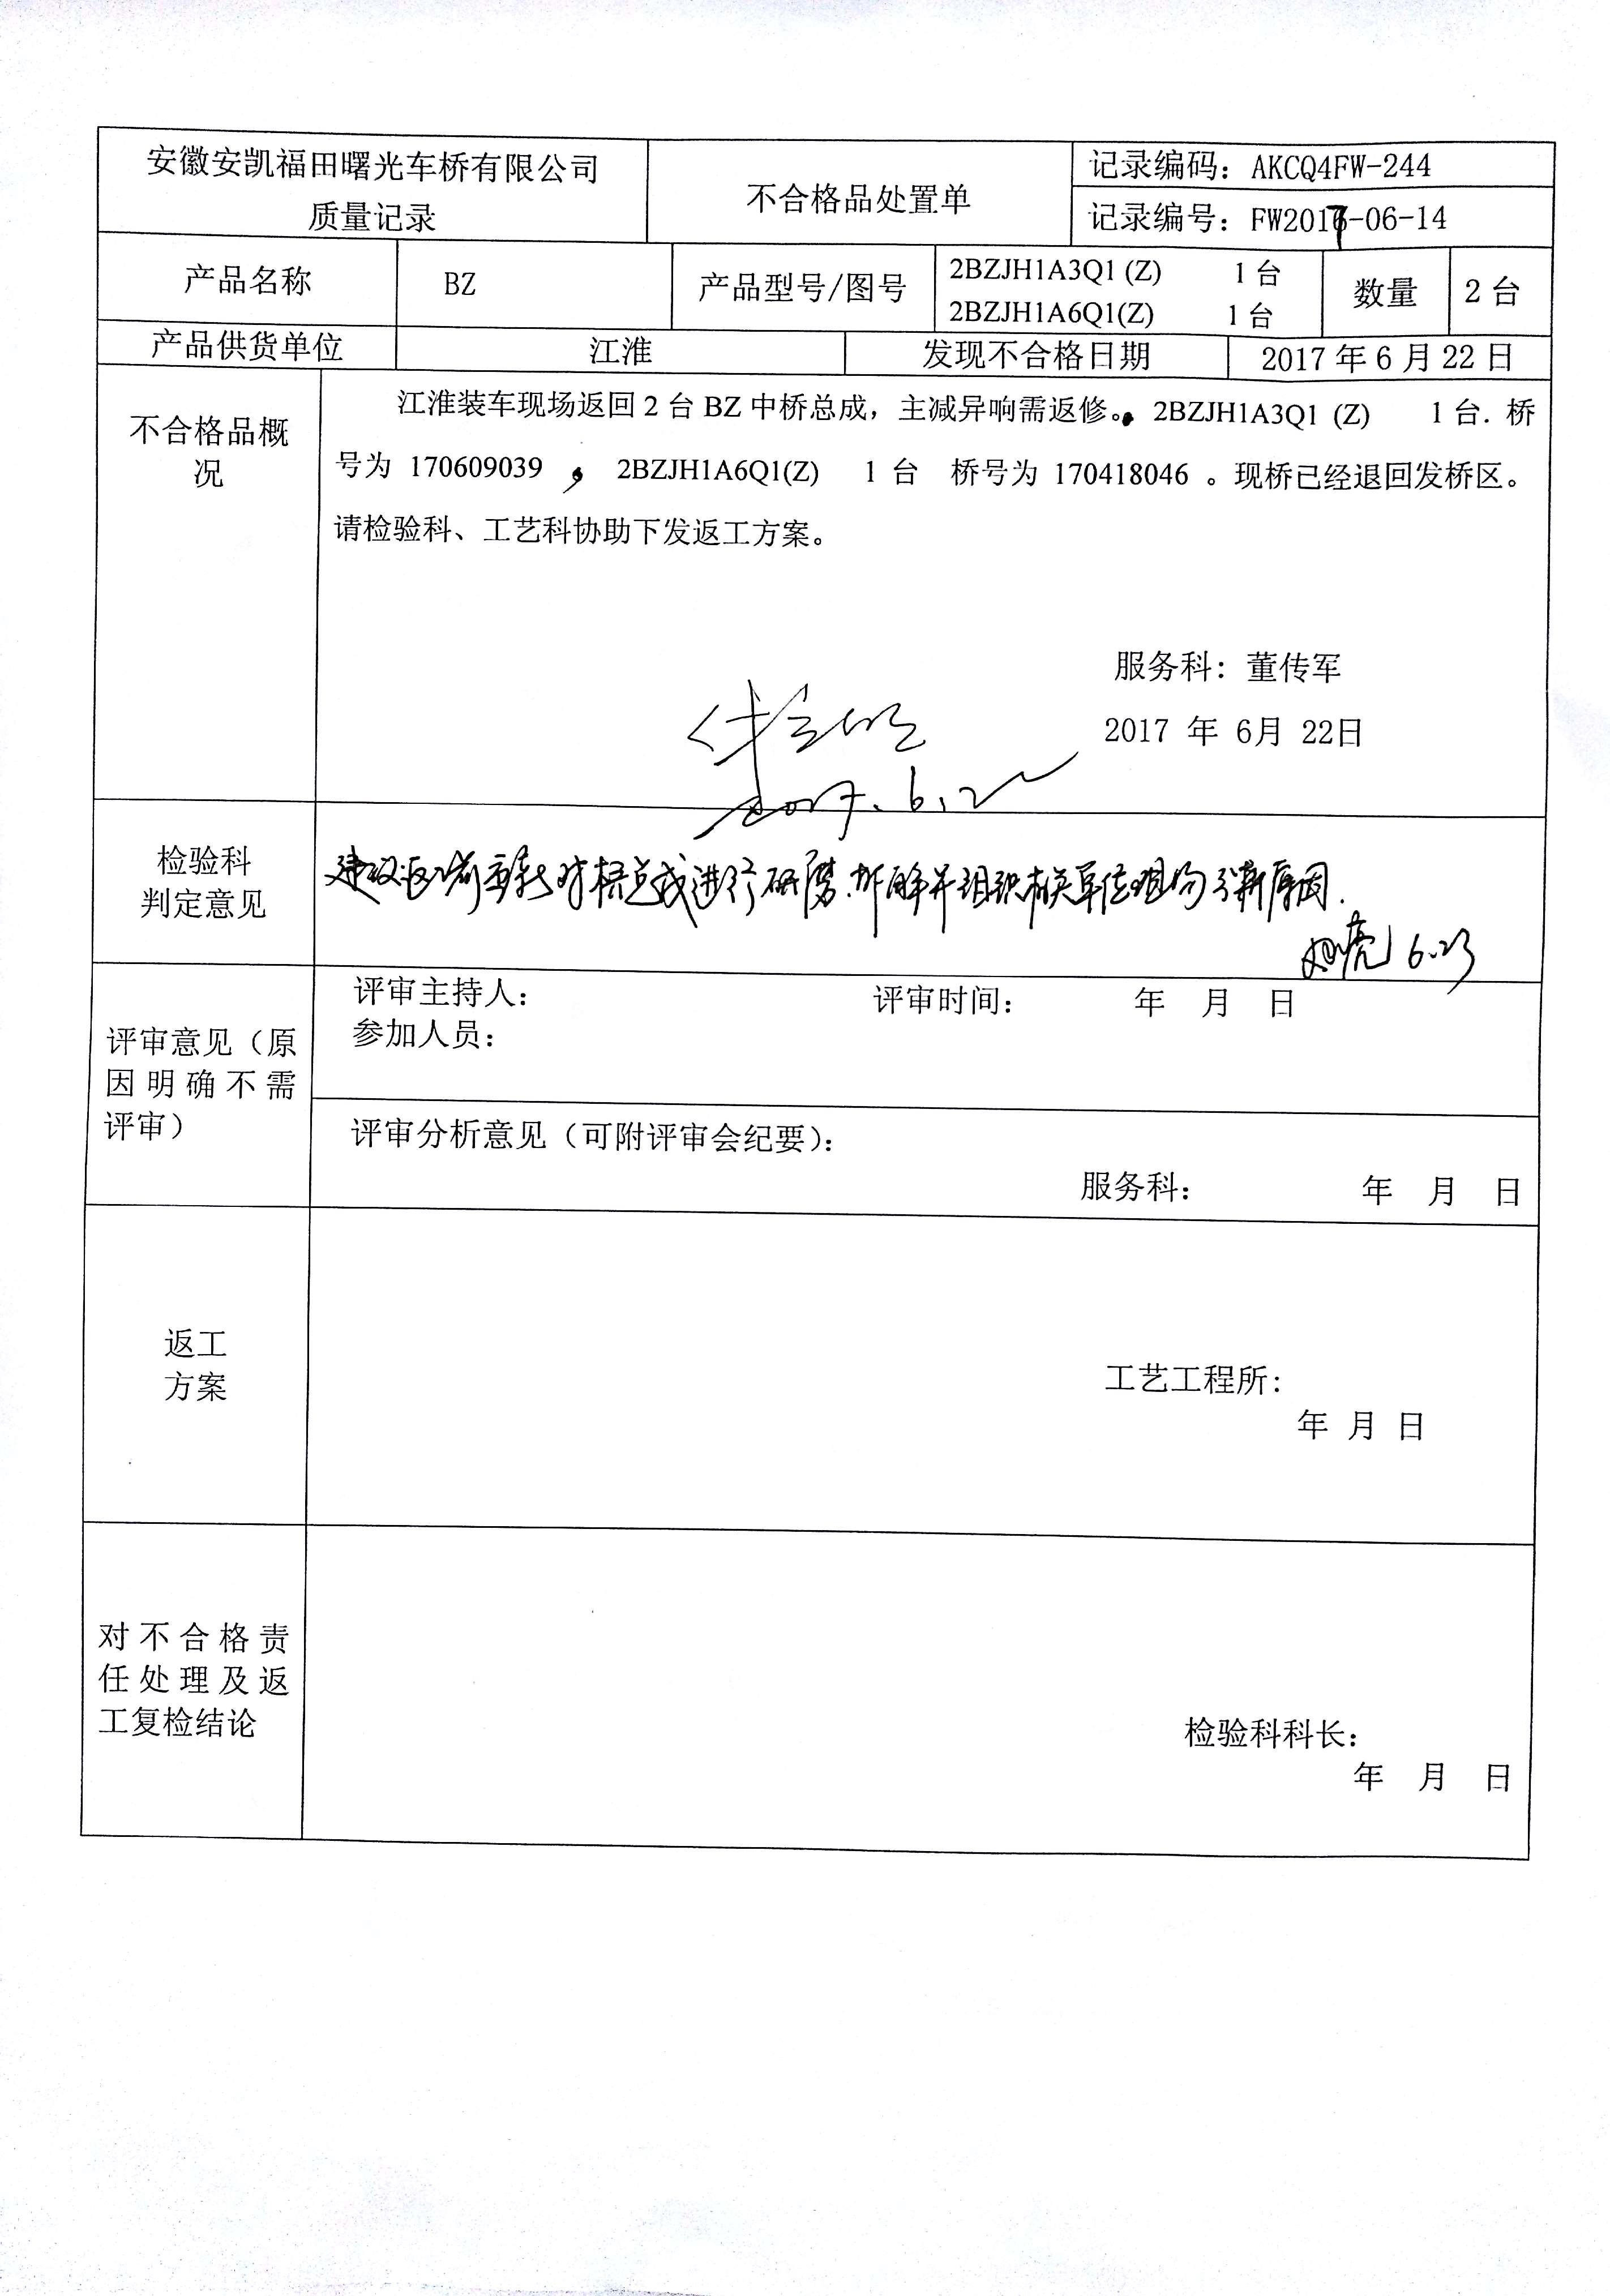 安徽安凯福田曙光车桥有限公司
质量记录
不合格品处置单
记录编码：AKCQ4FW-244
记录编号：FW2017-06-14
产品名称
BZ
产品型号/图号
2BZJH1A3Q1 (Z) 1 台
2BZJH1A6Q1(Z) 1 台
数量
2 台
产品供货单位
江淮
发现不合格日期
2017 年 6 月 22 日
不合格品概
况
江淮装车现场返回 2 台 BZ 中桥总成，主减异响需返修。 2BZJH1A3Q1 (Z) 1 台. 桥
号为 170609039 , 2BZJH1A6Q1(Z) 1 台 桥号为 170418046 。现桥已经退回发桥区。
请检验科、工艺科协助下发返工方案。
服务科：董传军
2017 年 6月 22日
2017.6.2
检验科
判定意见
建议返工前 对桥总成进行研磨.拆解并组织相关单位现场分析原因.
亮 6.23
评审意见（原
因明确不需
评审）
评审主持人： 评审时间： 年 月 日
参加人员：
评审分析意见（可附评审会纪要）：
服务科： 年 月 日
返工
方案
工艺工程所：
年 月 日
对不合格责
任处理及返
工复检结论
检验科科长：
年 月 日